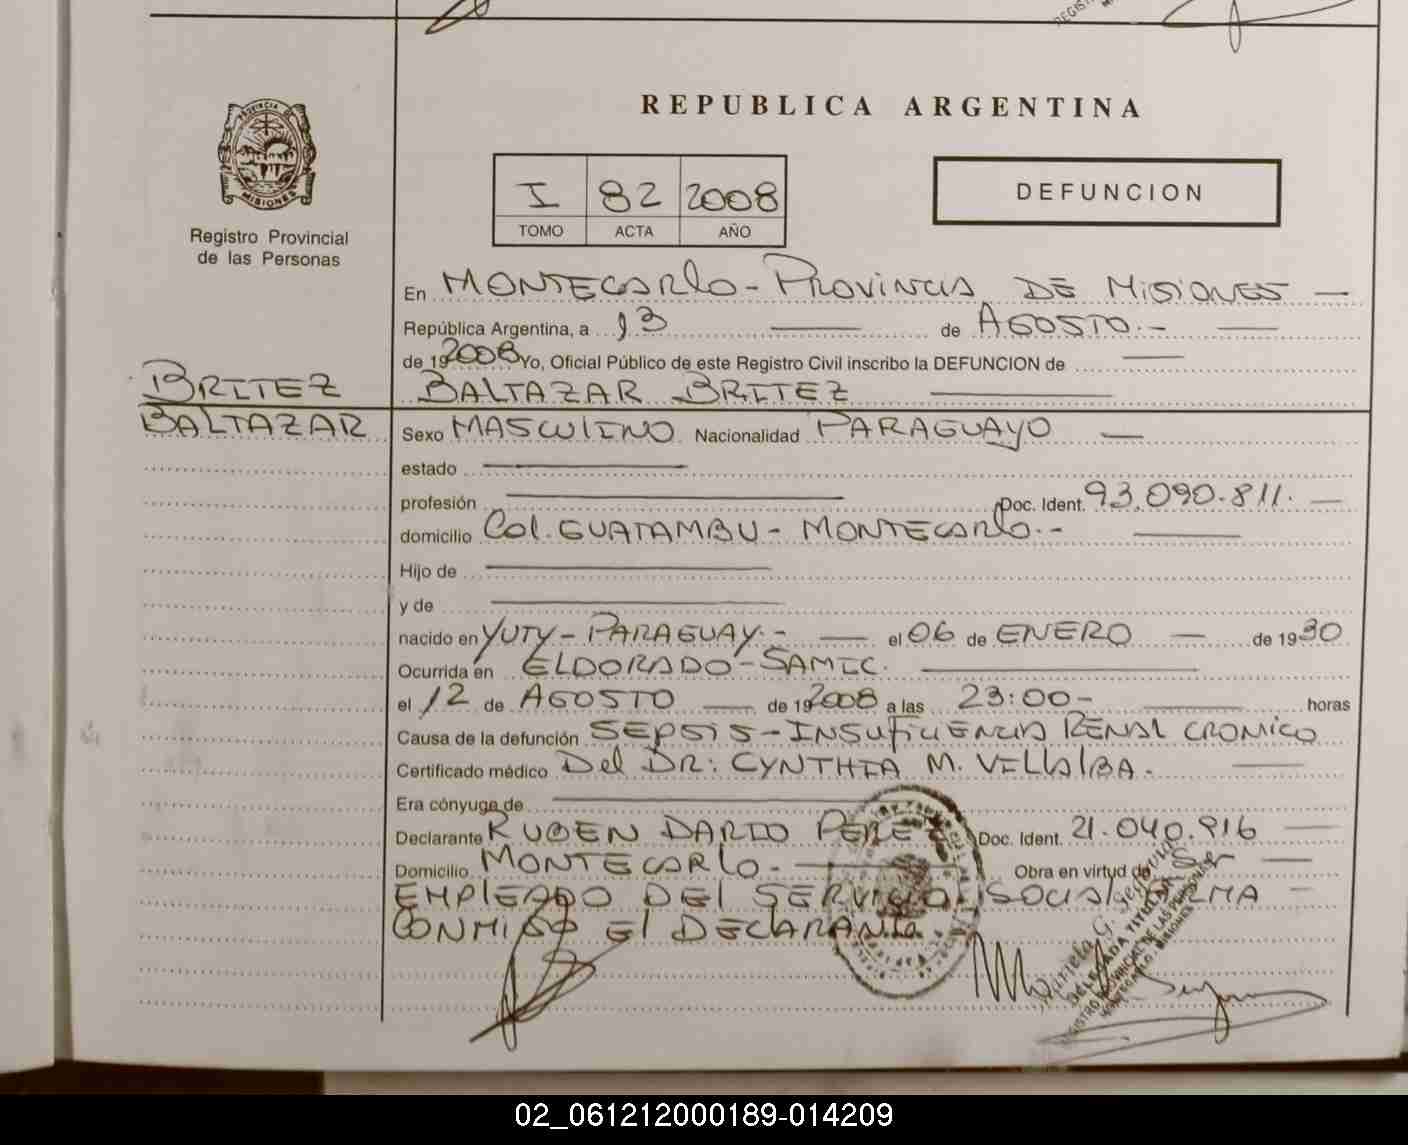 REPUBLICA ARGENTINA
PROVINCIA
MISIONES
Registro Provincial
de las Personas
I 82 2008
TOMO ACTA AÑO
DEFUNCION
En MONTECARLO - PROVINCIA DE MISIONES —
República Argentina, a 13 — de AGOSTO.- —
de 192008 Yo, Oficial Público de este Registro Civil inscribo la DEFUNCION de —
BRITEZ
BALTAZAR
BALTAZAR BRITEZ —
Sexo MASCULINO Nacionalidad PARAGUAYO —
estado —
profesión — Doc. Ident. 93.090.811. —
domicilio Col. GUATAMBU - MONTECARLO.- —
Hijo de —
y de —
nacido en YUTY - PARAGUAY.- — el 06 de ENERO — de 1930
Ocurrida en ELDORADO - SAMIC. —
el 12 de AGOSTO — de 192008 a las 23:00- — horas
Causa de la defunción SEPSIS - INSUFICIENCIA RENAL CRONICO
Certificado médico Del DR: CYNTHIA M. VILLALBA. —
Era cónyuge de —
Declarante RUBEN DARIO PEREZ Doc. Ident. 21.040.916 —
Domicilio MONTECARLO. — Obra en virtud de Ser —
EMPLEADO DEL SERVICIO SOCIAL. FIRMA —
CONMIGO El DECLARANTE
Mariela G.
DELEGADA TITULAR
REGISTRO PROVINCIAL DE LAS PERSONAS
MONTECARLO - MISIONES
02_061212000189-014209